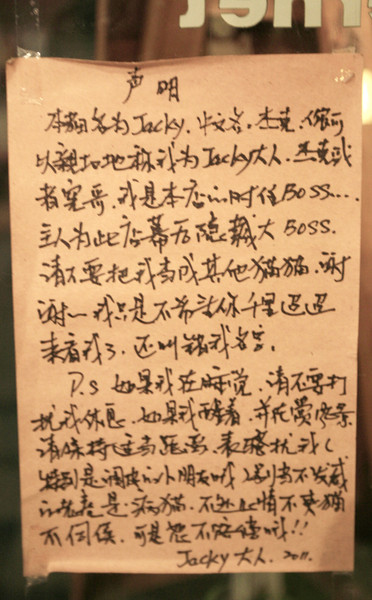 声明
本猫名为Jacky.中文名.杰克.你可
以亲切地称我为Jacky大人.杰克或
者宠哥.我是本店的时任BOSS...
主人为此店幕后隐藏大BOSS.
请不要把我当成其他猫猫.谢
谢~我只是不希望你千里迢迢
来看我了.还叫错我名字.
P.S 如果我在睡觉.请不要打
扰我休息.如果我醒着.并在赏风景
请保持适当距离.表骚扰我(
特别是调皮的小朋友哦)别当不发威
的老虎是病猫.不然此情不卖猫
不伺侯.可是恕不赔偿哦!!
Jacky大人.2011.